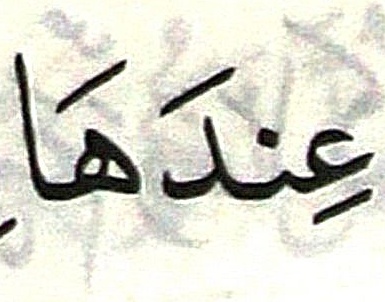 عِندَهَا